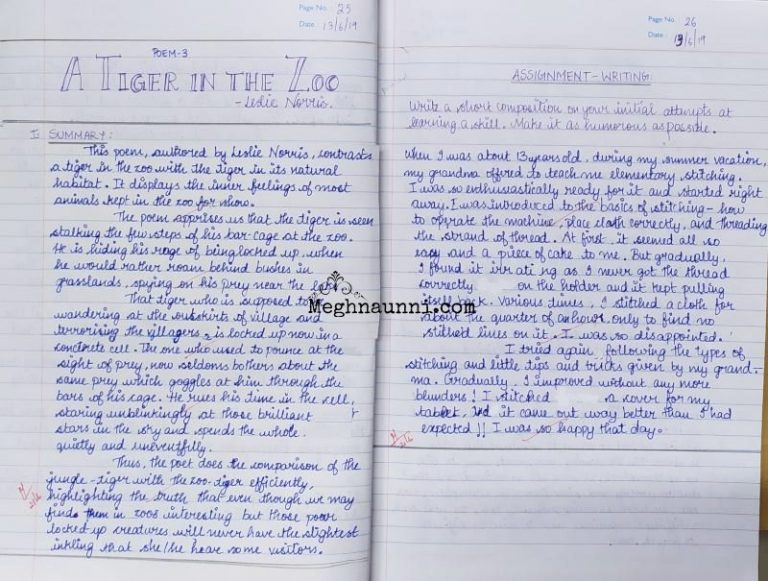 Page No. : 25
Date : 13/6/19
POEM-3
A TIGER IN THE ZOO
- Leslie Norris.
I SUMMARY:
This poem, authored by Leslie Norris, contrasts
a tiger in the zoo with the tiger in its natural
habitat. It displays the inner feelings of most
animals kept in the zoo for show.
The poem apprises us that the tiger is seen
stalking the few steps of his bar-cage at the zoo.
He is hiding his rage of being locked up, when
he would rather roam behind bushes in
grasslands, spying on his prey near the lake.
That tiger who is supposed to be
wandering at the outskirts of village and
terrorising the villagers, is locked up now in a
concrete cell. The one who used to pounce at the
sight of prey, now seldoms bothers about the
same prey which goggles at him through the
bars of his cage. He rues his time in the cell,
staring unblinkingly at those brilliant
stars in the sky and spends the whole
quietly and uneventfully.
Thus, the poet does the comparison of the
jungle-tiger with the zoo-tiger efficiently,
highlighting the truth that even though we may
find them in zoos interesting but those poor
locked up creatures will never have the slightest
inkling that she/he have some visitors.
Page No. : 26
Date : 13/6/19
ASSIGNMENT-WRITING
Write a short composition on your initial attempts at
learning a skill. Make it as humorous as possible.
When I was about 13 years old, during my summer vacation,
my grandma offered to teach me elementary stitching.
I was so enthusiastically ready for it and started right
away. I was introduced to the basics of stitching- how
to operate the machine, place cloth correctly, and threading
the strand of thread. At first, it seemed all so
easy and a piece of cake to me. But gradually,
I found it irrating as I never got the thread
correctly on the holder and it kept pulling
itself back. Various times, I stitched a cloth for
about the quarter of an hour, only to find no
stitched lines on it. I was so disappointed.
I tried again, following the types of
stitching and little tips and tricks given by my grand-
ma. Gradually, I improved without any more
blunders! I stitched a cover for my
tablet, and it came out way better than I had
expected!! I was so happy that day.
Meghnaunni.com